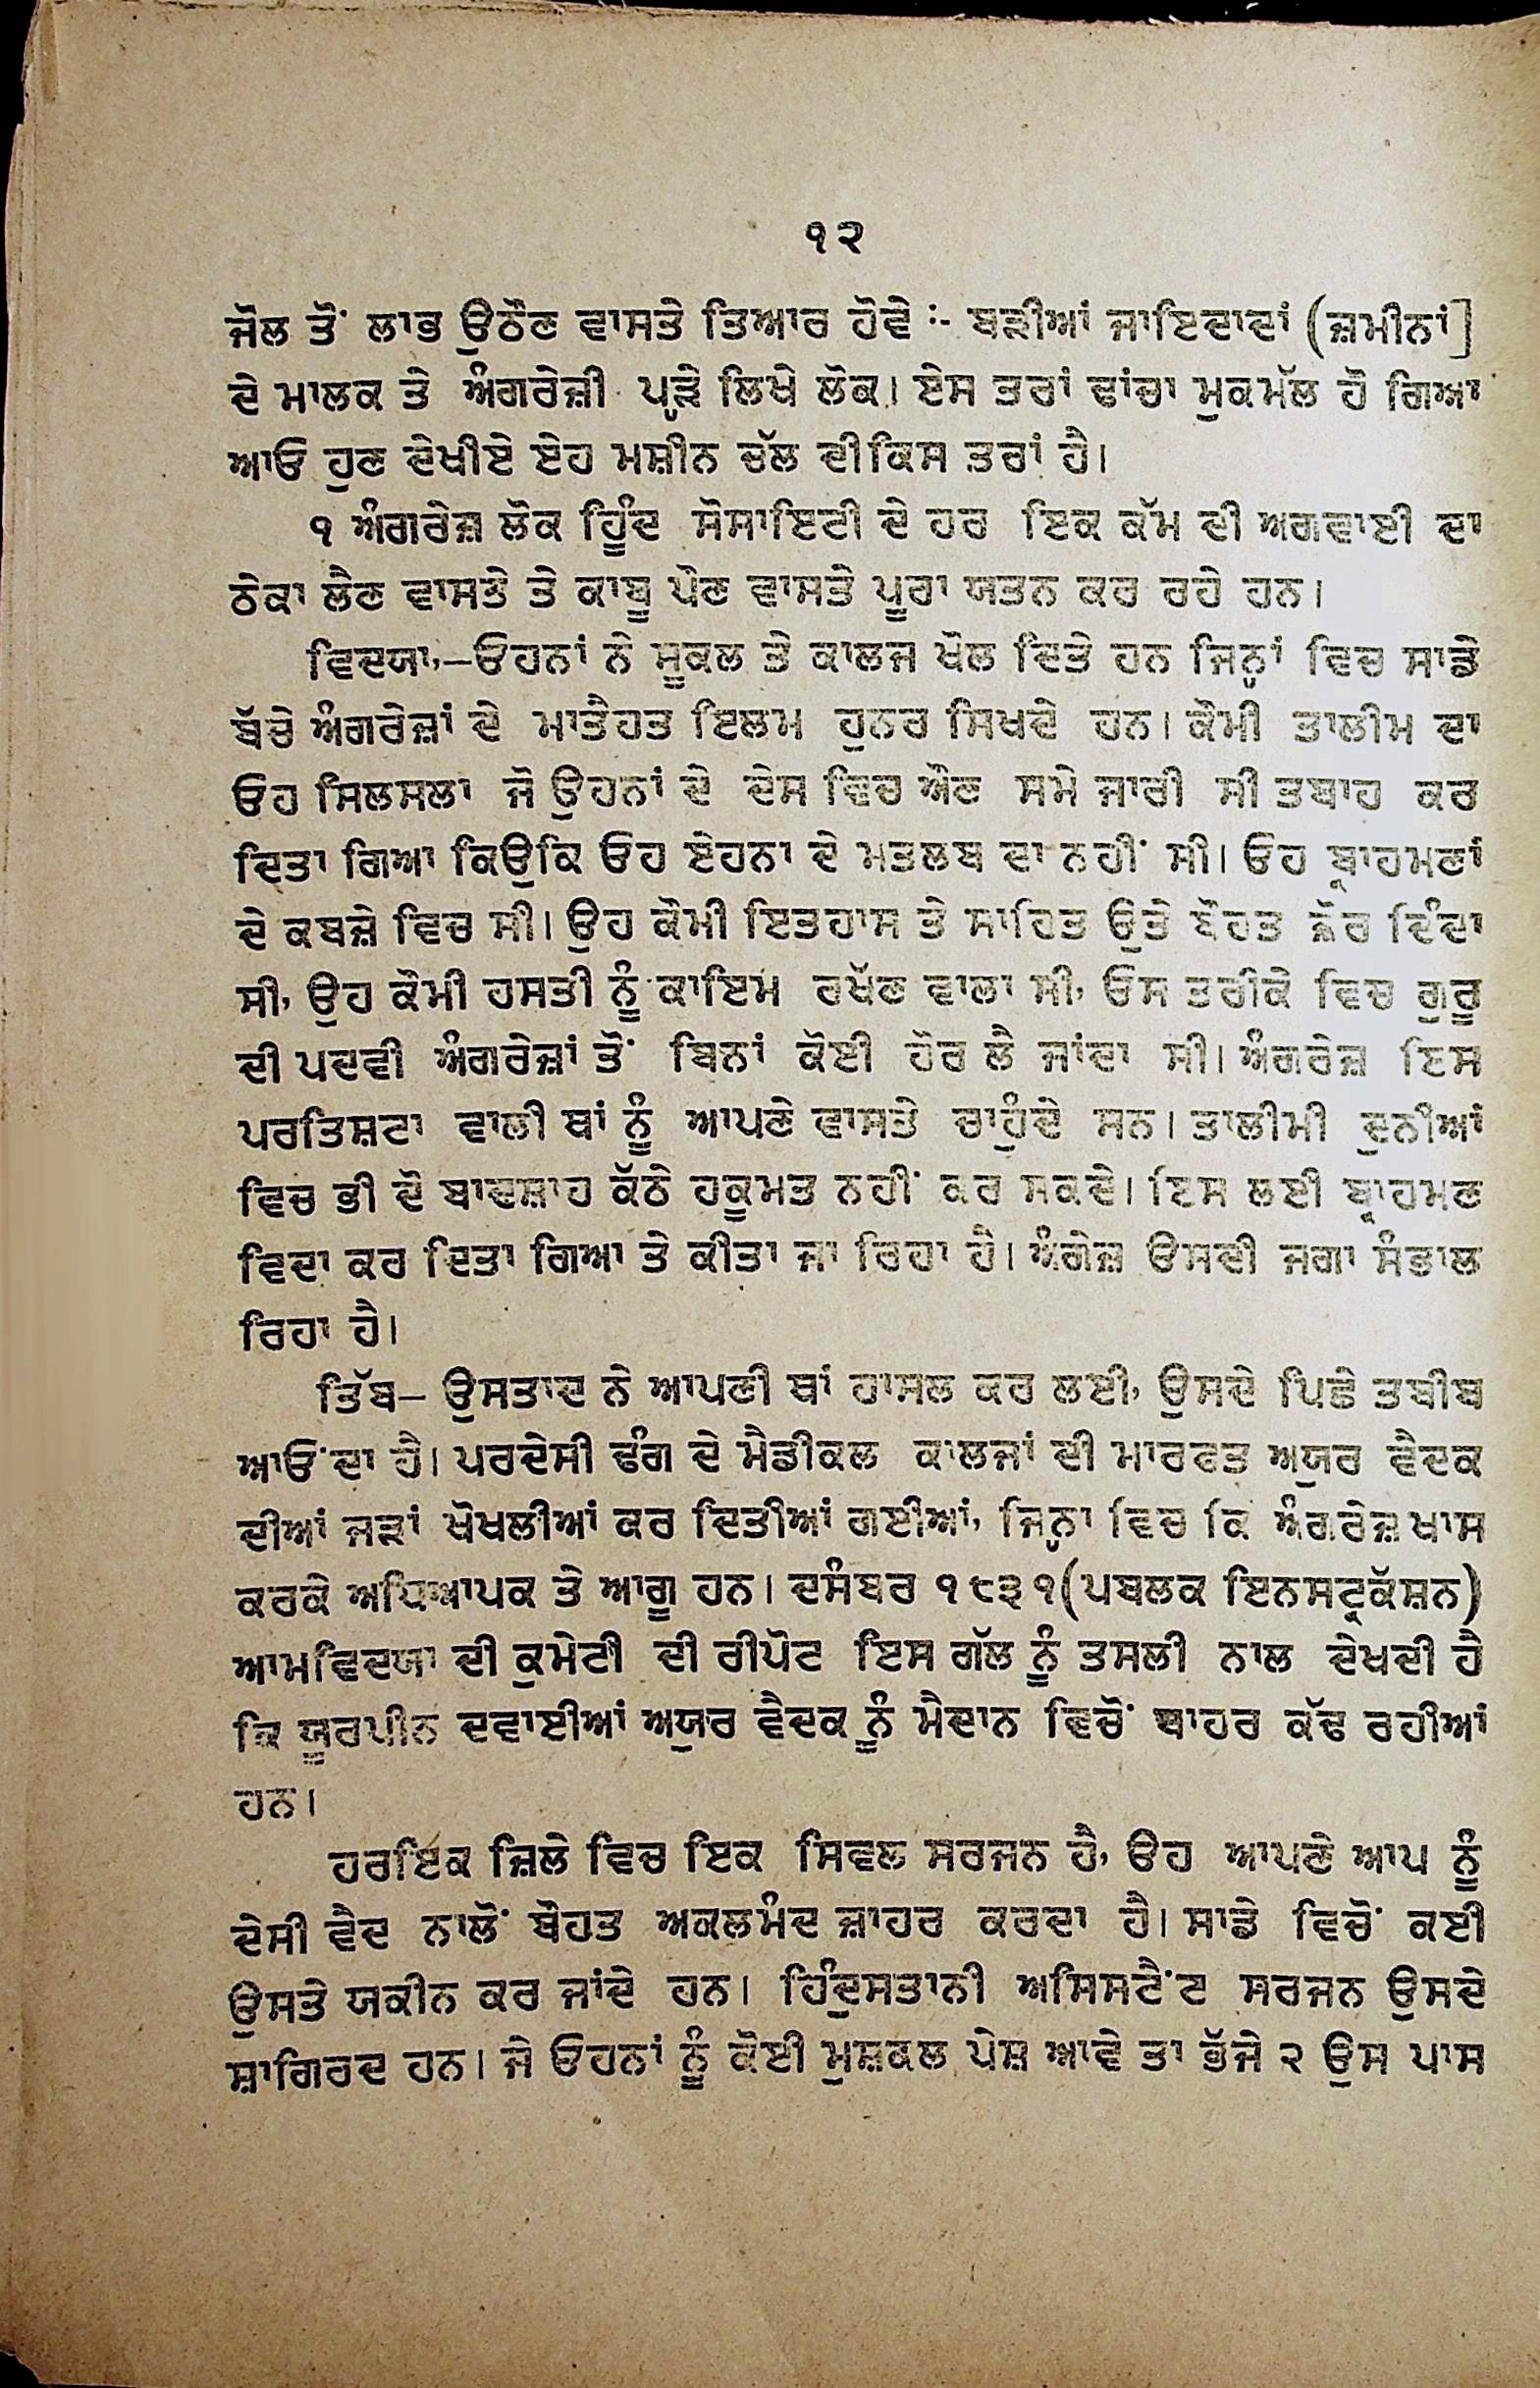 ੧੨
ਜੋਲ ਤੋਂ ਲਾਭ ਉਠੌਣ ਵਾਸਤੇ ਤਿਆਰ ਹੋਵੇ :- ਬੜੀਆਂ ਜਾਇਦਾਦਾਂ (ਜ਼ਮੀਨਾਂ]
ਦੇ ਮਾਲਕ ਤੇ ਅੰਗਰੇਜ਼ੀ ਪੜ੍ਹੇ ਲਿਖੇ ਲੋਕ। ਏਸ ਤਰਾਂ ਢਾਂਚਾ ਮੁਕਮੱਲ ਹੋ ਗਿਆ
ਆਓ ਹੁਣ ਦੇਖੀਏ ਏਹ ਮਸ਼ੀਨ ਚੱਲ ਦੀ ਕਿਸ ਤਰਾਂ ਹੈ।
੧ ਅੰਗਰੇਜ਼ ਲੋਕ ਹਿੂੰਦ ਸੋਸਾਇਟੀ ਦੇ ਹਰ ਇਕ ਕੱਮ ਦੀ ਅਗਵਾਈ ਦਾ
ਠੇਕਾ ਲੈਣ ਵਾਸਤੇ ਤੇ ਕਾਬੂ ਪੌਣ ਵਾਸਤੇ ਪੂਰਾ ਯਤਨ ਕਰ ਰਹੇ ਹਨ।
ਵਿਦਯਾ,–ਓਹਨਾਂ ਨੇ ਸੂਕਲ ਤੇ ਕਾਲਜ ਖੋਲ ਦਿਤੇ ਹਨ ਜਿਨ੍ਹਾਂ ਵਿਚ ਸਾਡੇ
ਬੱਚੇ ਅੰਗਰੇਜ਼ਾਂ ਦੇ ਮਾਤੈਹਤ ਇਲਮ ਹੁਨਰ ਸਿਖਦੇ ਹਨ। ਕੌਮੀ ਤਾਲੀਮ ਦਾ
ਓਹ ਸਿਲਸਲਾ ਜੋ ਉਹਨਾਂ ਦੇ ਦੇਸ ਵਿਚ ਔਣ ਸਮੇ ਜਾਰੀ ਸੀ ਤਬਾਹ ਕਰ
ਦਿਤਾ ਗਿਆ ਕਿਉਕਿ ਓਹ ਏਹਨਾ ਦੇ ਮਤਲਬ ਦਾ ਨਹੀਂ ਸੀ। ਓਹ ਬ੍ਰਾਹਮਣਾਂ
ਦੇ ਕਬਜ਼ੇ ਵਿਚ ਸੀ। ਉਹ ਕੌਮੀ ਇਤਹਾਸ ਤੇ ਸਾਹਿਤ ਉਤੇ ਬੌਹਤ ਜ਼ੋਰ ਦਿੰਦਾ
ਸੀ, ਉਹ ਕੌਮੀ ਹਸਤੀ ਨੂੰ ਕਾਇਮ ਰਖੱਣ ਵਾਲਾ ਸੀ, ਓਸ ਤਰੀਕੇ ਵਿਚ ਗੁਰੂ
ਦੀ ਪਦਵੀ ਅੰਗਰੇਜ਼ਾਂ ਤੋਂ ਬਿਨਾਂ ਕੋਈ ਹੋਰ ਲੈ ਜਾਂਦਾ ਸੀ। ਅੰਗਰੇਜ਼ ਇਸ
ਪਰਤਿਸ਼ਟਾ ਵਾਲੀ ਥਾਂ ਨੂੰ ਆਪਣੇ ਵਾਸਤੇ ਚਾਹੁੰਦੇ ਸਨ। ਤਾਲੀਮੀ ਦੁਨੀਆਂ
ਵਿਚ ਭੀ ਦੋ ਬਾਦਸ਼ਾਹ ਕੱਠੇ ਹਕੂਮਤ ਨਹੀਂ ਕਰ ਸਕਦੇ। ਇਸ ਲਈ ਬ੍ਰਾਹਮਣ
ਵਿਦਾ ਕਰ ਦਿਤਾ ਗਿਆ ਤੇ ਕੀਤਾ ਜਾ ਰਿਹਾ ਹੈ। ਅੰਗੇਜ਼ ਉਸਦੀ ਜਗਾ ਸੰਭਾਲ
ਰਿਹਾ ਹੈ।
ਤਿੱਬ– ਉਸਤਾਦ ਨੇ ਆਪਣੀ ਥਾਂ ਹਾਸਲ ਕਰ ਲਈ, ਉਸਦੇ ਪਿਛੇ ਤਬੀਬ
ਆਓਂਦਾ ਹੈ। ਪਰਦੇਸੀ ਢੰਗ ਦੇ ਮੈਡੀਕਲ ਕਾਲਜਾਂ ਦੀ ਮਾਰਫਤ ਅਯੁਰ ਵੈਦਕ
ਦੀਆਂ ਜੜਾਂ ਖੋਖਲੀਆਂ ਕਰ ਦਿਤੀਆਂ ਗਈਆਂ, ਜਿਨ੍ਹਾ ਵਿਚ ਕਿ ਅੰਗਰੇਜ਼ ਖਾਸ
ਕਰਕੇ ਅਧਿਆਪਕ ਤੇ ਆਗੂ ਹਨ। ਦਸੰਬਰ ੧੮੩੧(ਪਬਲਕ ਇਨਸਟ੍ਰਕੱਸ਼ਨ)
ਆਮਵਿਦਯਾ ਦੀ ਕੁਮੇਟੀ ਦੀ ਰੀਪੋਟ ਇਸ ਗੱਲ ਨੂੰ ਤਸਲੀ ਨਾਲ ਦੇਖਦੀ ਹੈ
ਕਿ ਯੂਰਪੀਨ ਦਵਾਈਆਂ ਅਯੁਰ ਵੈਦਕ ਨੂੰ ਮੈਦਾਨ ਵਿਚੋਂ ਬਾਹਰ ਕੱਢ ਰਹੀਆਂ
ਹਨ।
ਹਰਇਕ ਜ਼ਿਲੇ ਵਿਚ ਇਕ ਸਿਵਲ ਸਰਜਨ ਹੈ, ਓਹ ਆਪਣੇ ਆਪ ਨੂੰ
ਦੇਸੀ ਵੈਦ ਨਾਲੋਂ ਬੌਹਤ ਅਕਲਮੰਦ ਜ਼ਾਹਰ ਕਰਦਾ ਹੈ। ਸਾਡੇ ਵਿਚੋਂ ਕਈ
ਉਸਤੇ ਯਕੀਨ ਕਰ ਜਾਂਦੇ ਹਨ। ਹਿੰਦੁਸਤਾਨੀ ਅਸਿਸਟੈਂਟ ਸਰਜਨ ਉਸਦੇ
ਸ਼ਾਗਿਰਦ ਹਨ। ਜੇ ਓਹਨਾਂ ਨੂੰ ਕੋਈ ਮੁਸ਼ਕਲ ਪੇਸ਼ ਆਵੇ ਤਾ ਭੱਜੇ ੨ ਉਸ ਪਾਸ